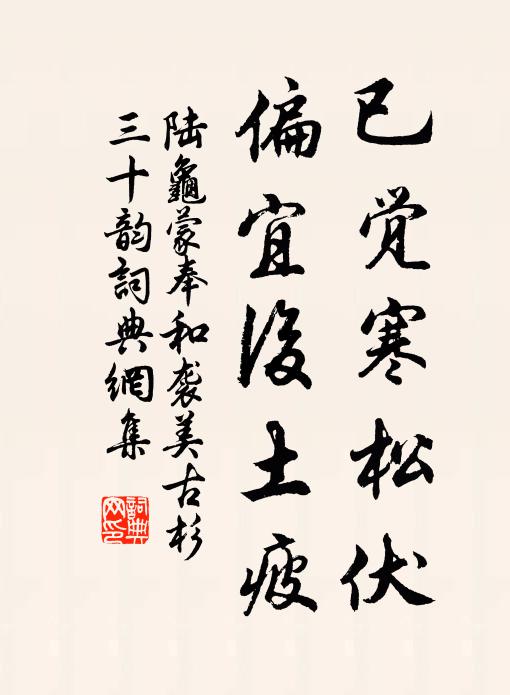 已觉寒松伏
偏宜後土疲
陆龜蒙奉和袭美古杉
三十韵詞典網集
詞典网印